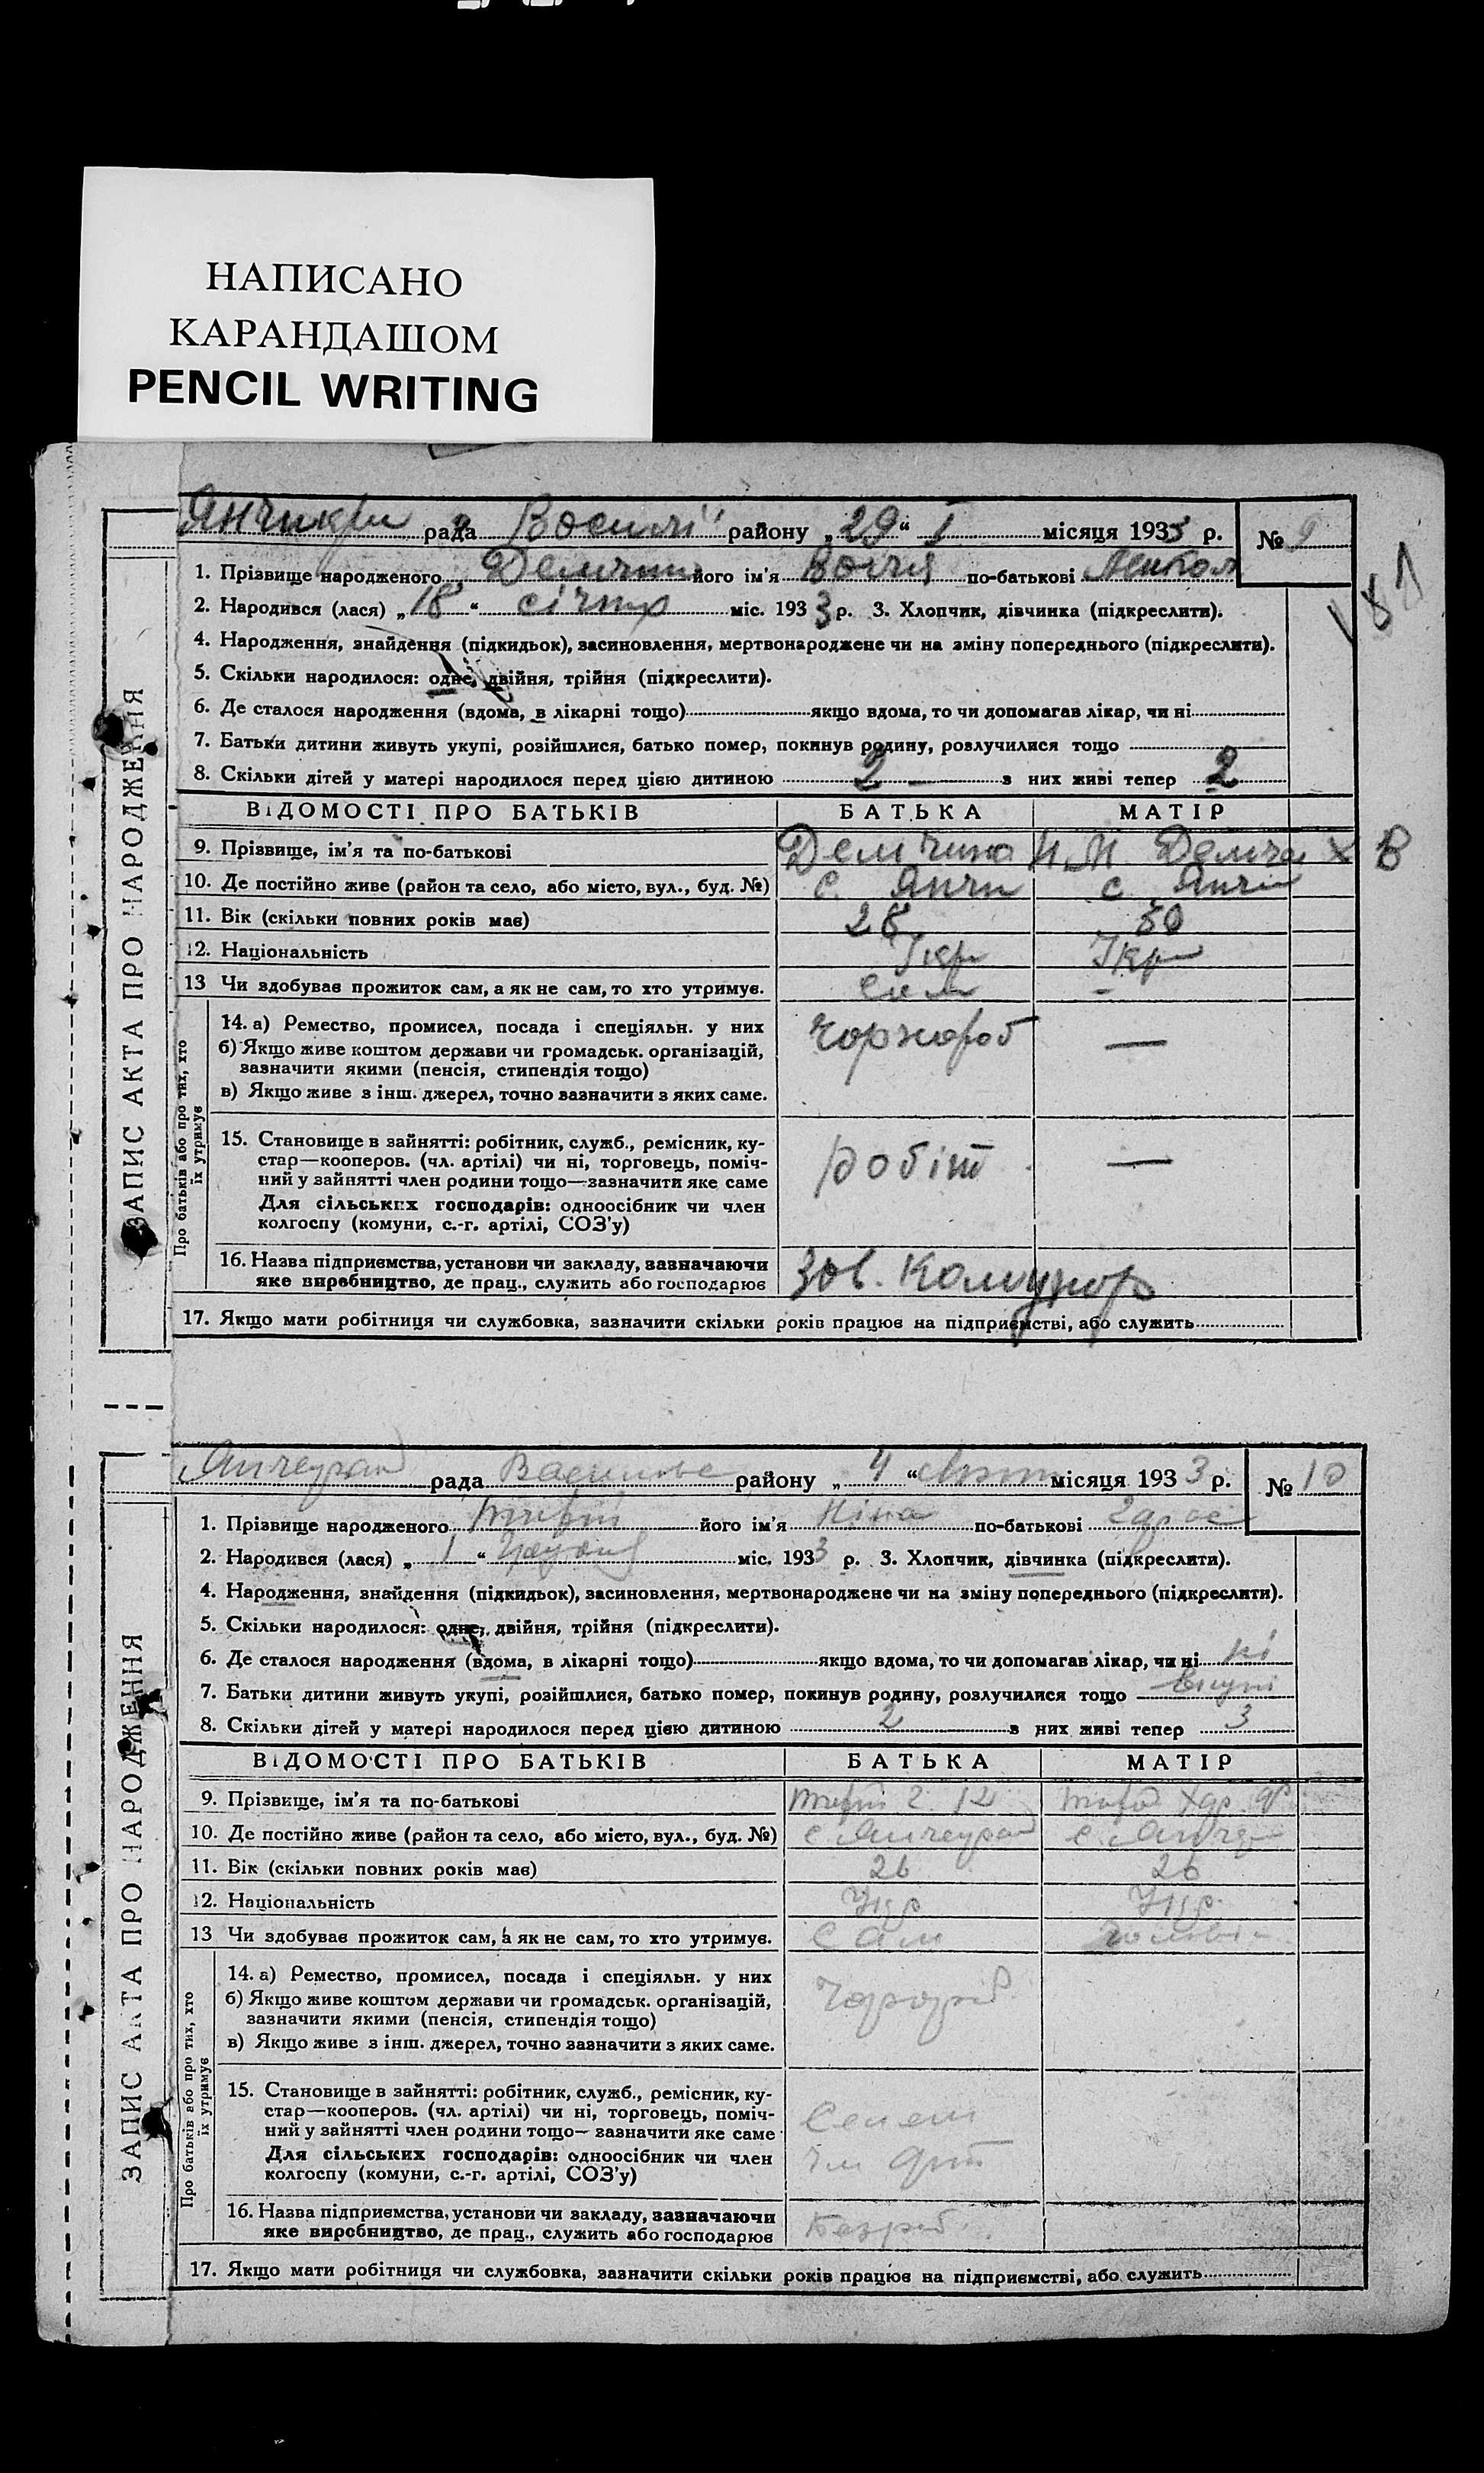 НАПИСАНО
КАРАНДАШОМ
PENCIL WRITING
рада району „29“ I місяця 1933 р. № 9
1. Прізвище народженого його ім'я по-батькові
181
2. Народився (лася) „18“ міс. 1933 р. 3. Хлопчик, дівчинка (підкреслити).
4. Народження, знайдення (підкидьок), засиновлення, мертвонароджене чи на зміну попереднього (підкреслити).
5. Скільки народилося: одне, двійня, трійня (підкреслити).
6. Де сталося народження (вдома, в лікарні тощо) якщо вдома, то чи допомагав лікар, чи ні
7. Батьки дитини живуть укупі, розійшлися, батько помер, покинув родину, розлучилися тощо
8. Скільки дітей у матері народилося перед цією дитиною 2 — з них живі тепер 2
ВІДОМОСТІ ПРО БАТЬКІВ БАТЬКА МАТІР
9. Прізвище, ім'я та по-батькові Демчина Н. М. В
10. Де постійно живе (район та село, або місто, вул., буд. №) с. Янчи с Янчи
11. Вік (скільки повних років має) 28
12. Національність Укр Укр
13 Чи здобував прожиток сам, а як не сам, то хто утримує. сам –
14. а) Ремество, промисел, посада і спеціяльн. у них Чорнороб —
б) Якщо живе коштом держави чи громадськ. організацій,
зазначити якими (пенсія, стипендія тощо)
в) Якщо живе з інш. джерел, точно зазначити з яких саме.
15. Становище в зайнятті: робітник, служб., ремісник, ку-
стар—кооперов. (чл. артілі) чи ні, торговець, поміч- робіт —
ний у зайнятті член родини тощо—зазначити яке саме
Для сільських господарів: одноосібник чи член
колгоспу (комуни, с.-г. артілі, СОЗ'у)
16. Назва підприємства, установи чи закладу, зазначаючи Зов. Комунор
яке виробництво, де прац., служить або господарює
17. Якщо мати робітниця чи службовка, зазначити скільки років працює на підприємстві, або служить
ЗАПИС АКТА ПРО НАРОДЖЕННЯ
Про батьків або про тих, хто
їх утримує
рада району „4“ місяця 1933 р. № 10
1. Прізвище народженого його ім'я Ніна по-батькові
2. Народився (лася) „1“ міс. 1933 р. 3. Хлопчик, дівчинка (підкреслити).
4. Народження, знайдення (підкидьок), засиновлення, мертвонароджене чи на зміну попереднього (підкреслити).
5. Скільки народилося: одне, двійня, трійня (підкреслити).
6. Де сталося народження (вдома, в лікарні тощо) якщо вдома, то чи допомагав лікар, чи ні ні
7. Батьки дитини живуть укупі, розійшлися, батько помер, покинув родину, розлучилися тощо вкупі
8. Скільки дітей у матері народилося перед цією дитиною 2 з них живі тепер 3
ВІДОМОСТІ ПРО БАТЬКІВ БАТЬКА МАТІР
9. Прізвище, ім'я та по-батькові
10. Де постійно живе (район та село, або місто, вул., буд. №)
11. Вік (скільки повних років має) 26 26
12. Національність Укр Укр
13 Чи здобував прожиток сам, а як не сам, то хто утримує. Сам
14. а) Ремество, промисел, посада і спеціяльн. у них
б) Якщо живе коштом держави чи громадськ. організацій,
зазначити якими (пенсія, стипендія тощо)
в) Якщо живе з інш. джерел, точно зазначити з яких саме.
15. Становище в зайнятті: робітник, служб., ремісник, ку-
стар—кооперов. (чл. артілі) чи ні, торговець, поміч-
ний у зайнятті член родини тощо—зазначити яке саме
Для сільських господарів: одноосібник чи член
колгоспу (комуни, с.-г. артілі, СОЗ'у)
16. Назва підприємства, установи чи закладу, зазначаючи
яке виробництво, де прац., служить або господарює
17. Якщо мати робітниця чи службовка, зазначити скільки років працює на підприємстві, або служить
ЗАПИС АКТА ПРО НАРОДЖЕННЯ
Про батьків або про тих, хто
їх утримує